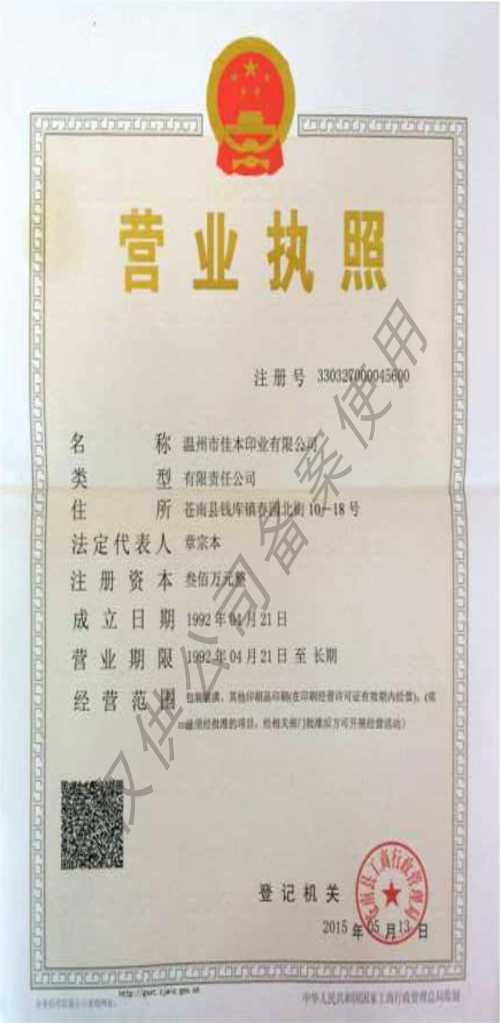 营业执照
注册号 330327000045600
名称 温州市佳本印业有限公司
类型 有限责任公司
住所 苍南县钱库镇春园北街10-18号
法定代表人 章宗本
注册资本 叁佰万元整
成立日期 1992年04月21日
营业期限 1992年04月21日至长期
经营范围 包装装潢、其他印刷品印刷(在印刷经营许可证有效期内经营)。(依
法须经批准的项目,经相关部门批准后方可开展经营活动)
仅供公司备案使用
苍南县工商行政管理局
登记机关
2015年05月13日
中华人民共和国国家工商行政管理总局监制